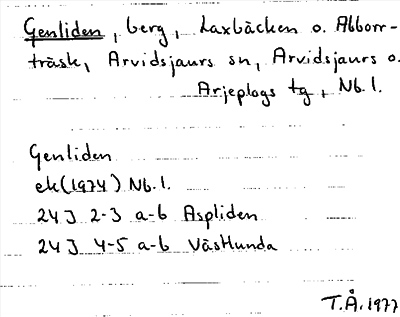 Genliden, berg, Laxbäcken o. Abborr-
träsk, Arvidsjaurs sn, Arvidsjaurs o.
Arjeplogs tg, Nb. l.
Genliden
ek(1974) Nb. l.
24J 2-3 a-b Aspliden
24J 4-5 a-b Västlunda
T.Å. 1977